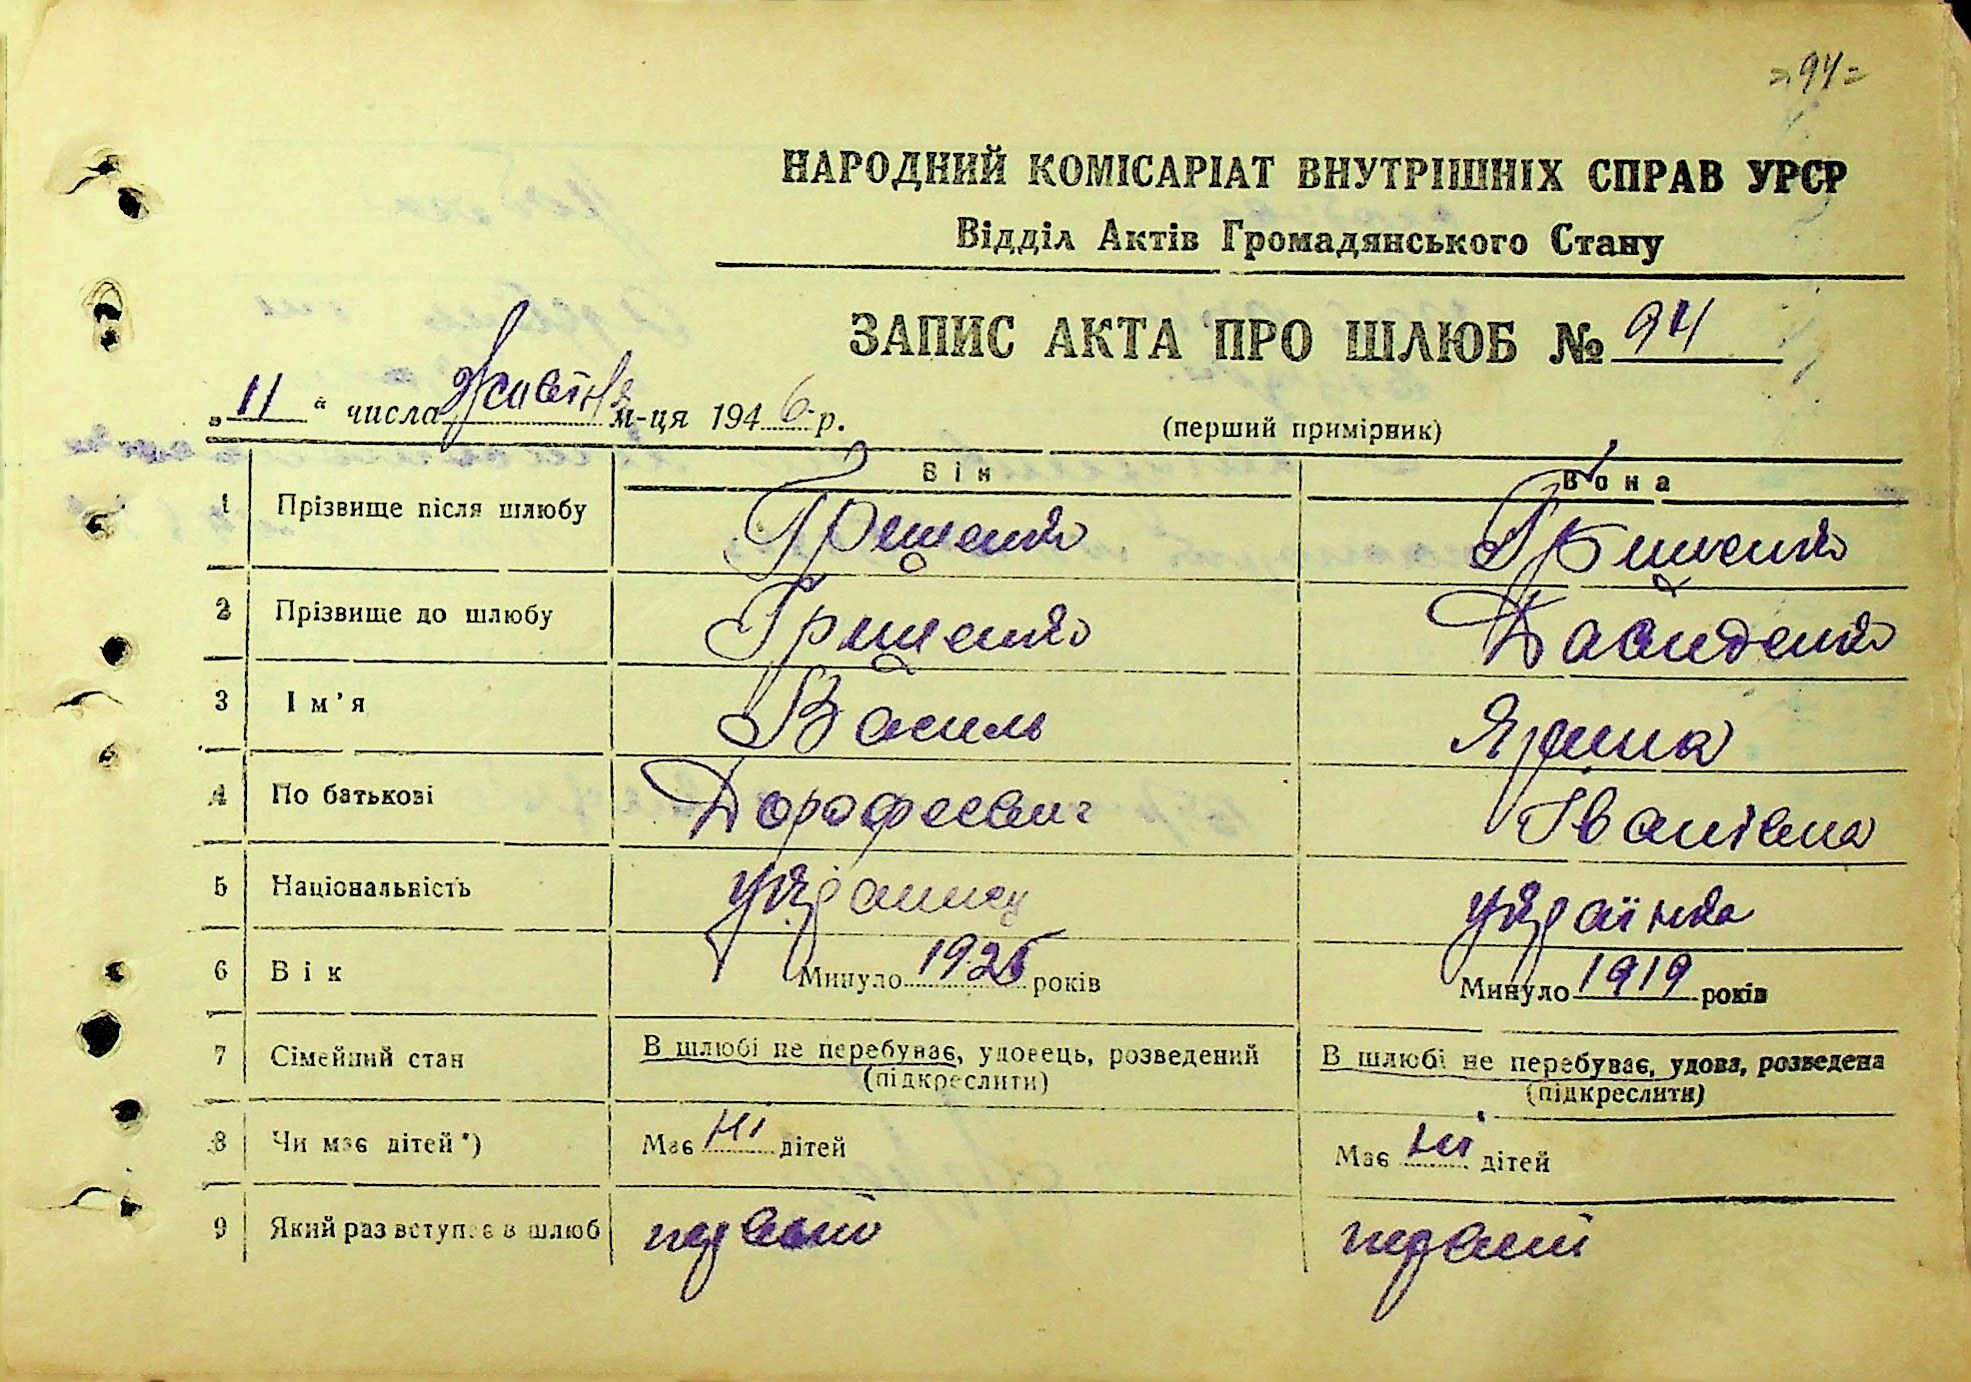 = 94 =
НАРОДНИЙ КОМІСАРІАТ ВНУТРІШНІХ СПРАВ УРСР
Відділ Актів Громадянського Стану
ЗАПИС АКТА ПРО ШЛЮБ № 94
„ 11 “ числа Жовтня м-ця 1946 р.
(перший примірник)
Він Вона
1 Прізвище після шлюбу Грищенко Грищенко
2 Прізвище до шлюбу Грищенко Давиденко
3 Ім'я Василь Ярина
4 По батькові Дорофеевич Іванівна
5 Національність українец українка
6 Вік Минуло 1926 років Минуло 1919 років
7 Сімейний стан В шлюбі не перебуває, удовець, розведений В шлюбі не перебуває, удова, розведена
(підкреслити) (підкреслити)
8 Чи має дітей*) Має ні дітей Має ні дітей
9 Який раз вступає в шлюб первий первий